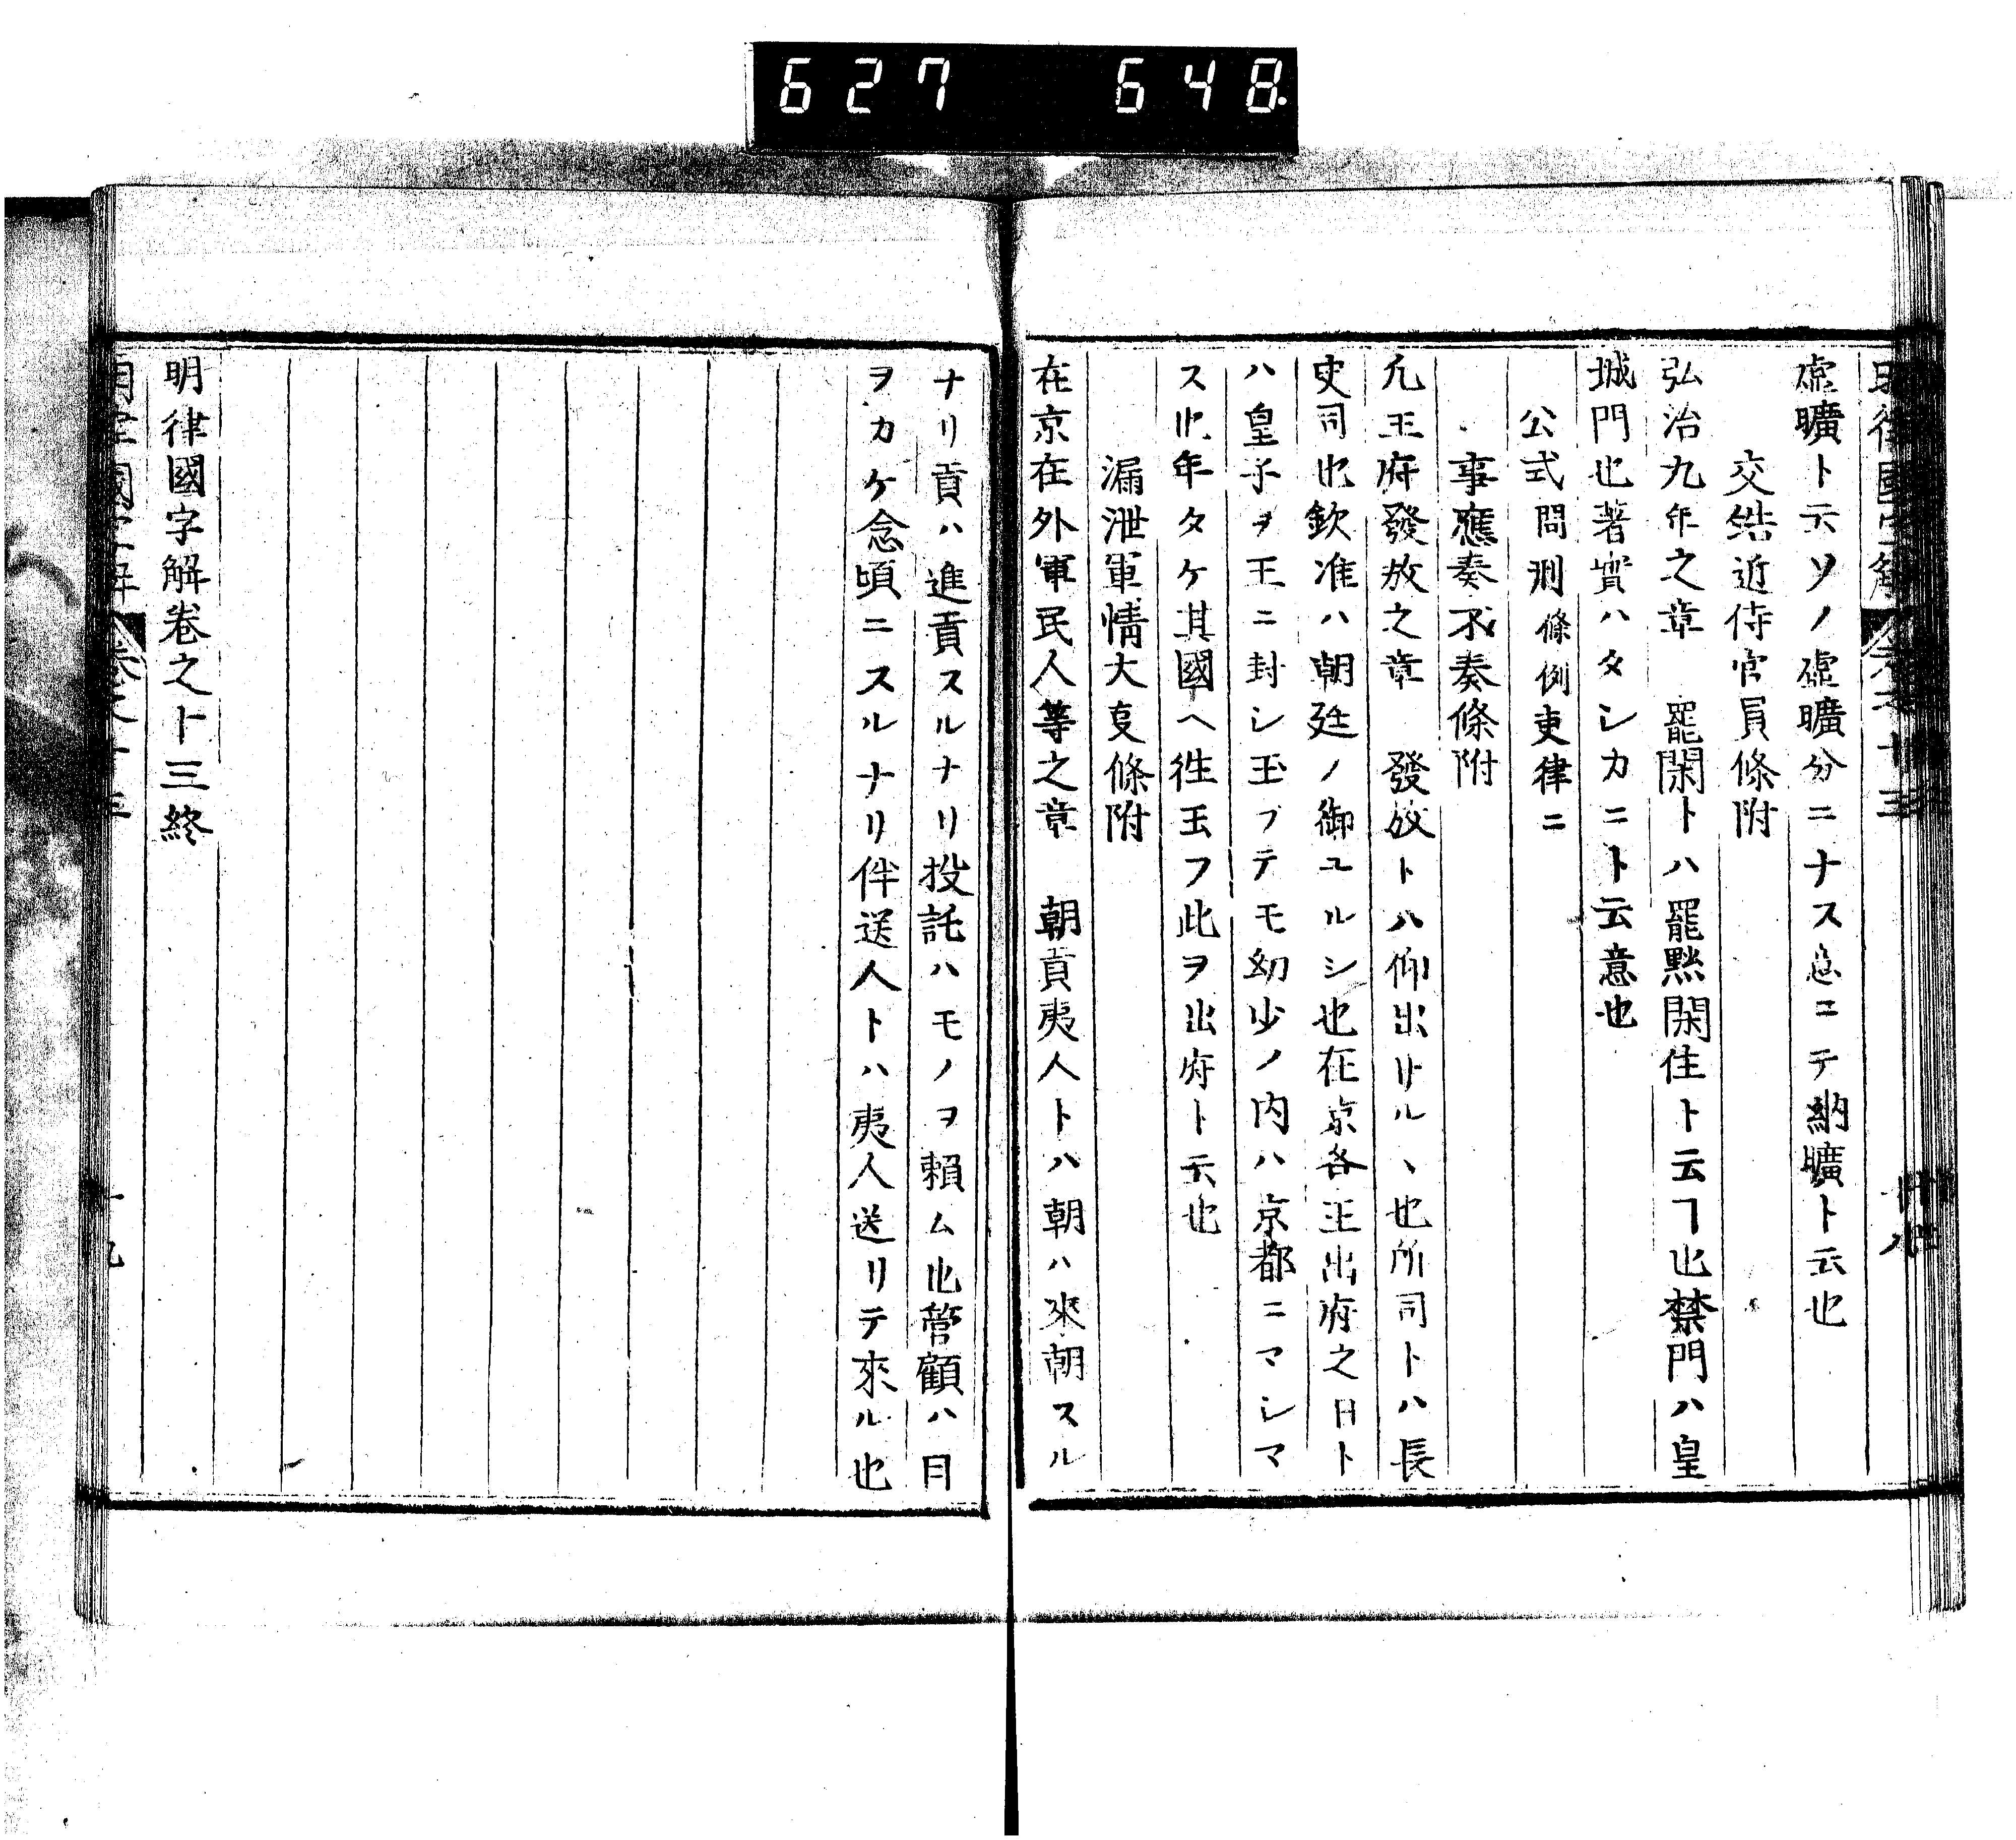 627 648
虚曠ト云ソノ虚曠分ニナス意ニテ納曠ト云也
交結近侍官員條附
弘治九年之章 罷閑トハ罷黙閑住ト云ヿ也禁門ハ皇
城門也著實ハタシカニト云意也
公式問刑條例吏律ニ
事應奏不奏條附
凡王府發放之章 發放トハ仰出サルヽ也所司トハ長
吏司也欽准ハ朝廷ノ御ユルシ也在京各王出府之日ト
ハ皇子ヲ王ニ封シ玉フテモ幼少ノ内ハ京都ニマシマ
ス也年タケ其國ヘ徃玉フ此ヲ出府ト云也
漏泄軍情大叓條附
在京在外軍民人等之章 朝貢夷人トハ朝ハ來朝スル
ナリ貢ハ進貢スルナリ投託ハモノヲ頼ム也管顧ハ目
ヲカケ念頃ニスルナリ伴送人トハ夷人送リテ來ル也
明律國字解卷之十三終